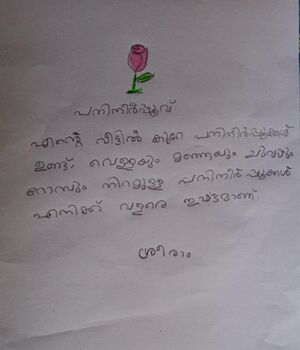 പനിനീർപ്പൂവ്
എന്റെ വീട്ടിൽ കുറേ പനിനീർപ്പൂക്കൾ
ഉണ്ട്. വെള്ളയും മഞ്ഞയും ചുവപ്പും
റോസും നിറമുള്ള പനിനീർപ്പൂക്കൾ
എനിക്ക് വളരെ ഇഷ്ടമാണ്.
ശ്രീരാം